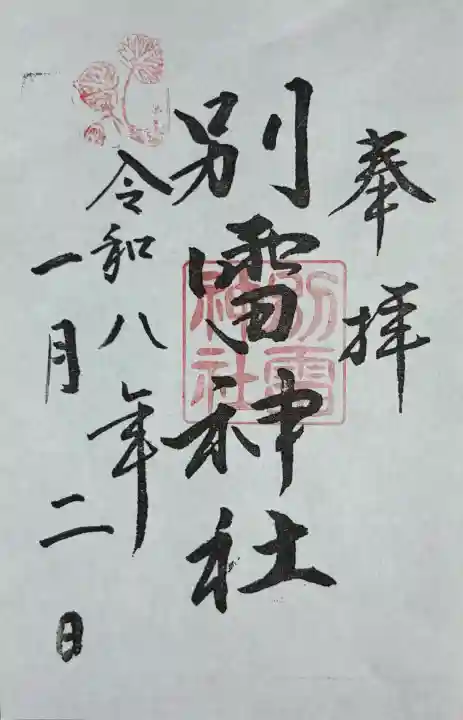 奉拝
別雷神社
別雷神社
令和八年
一月二日